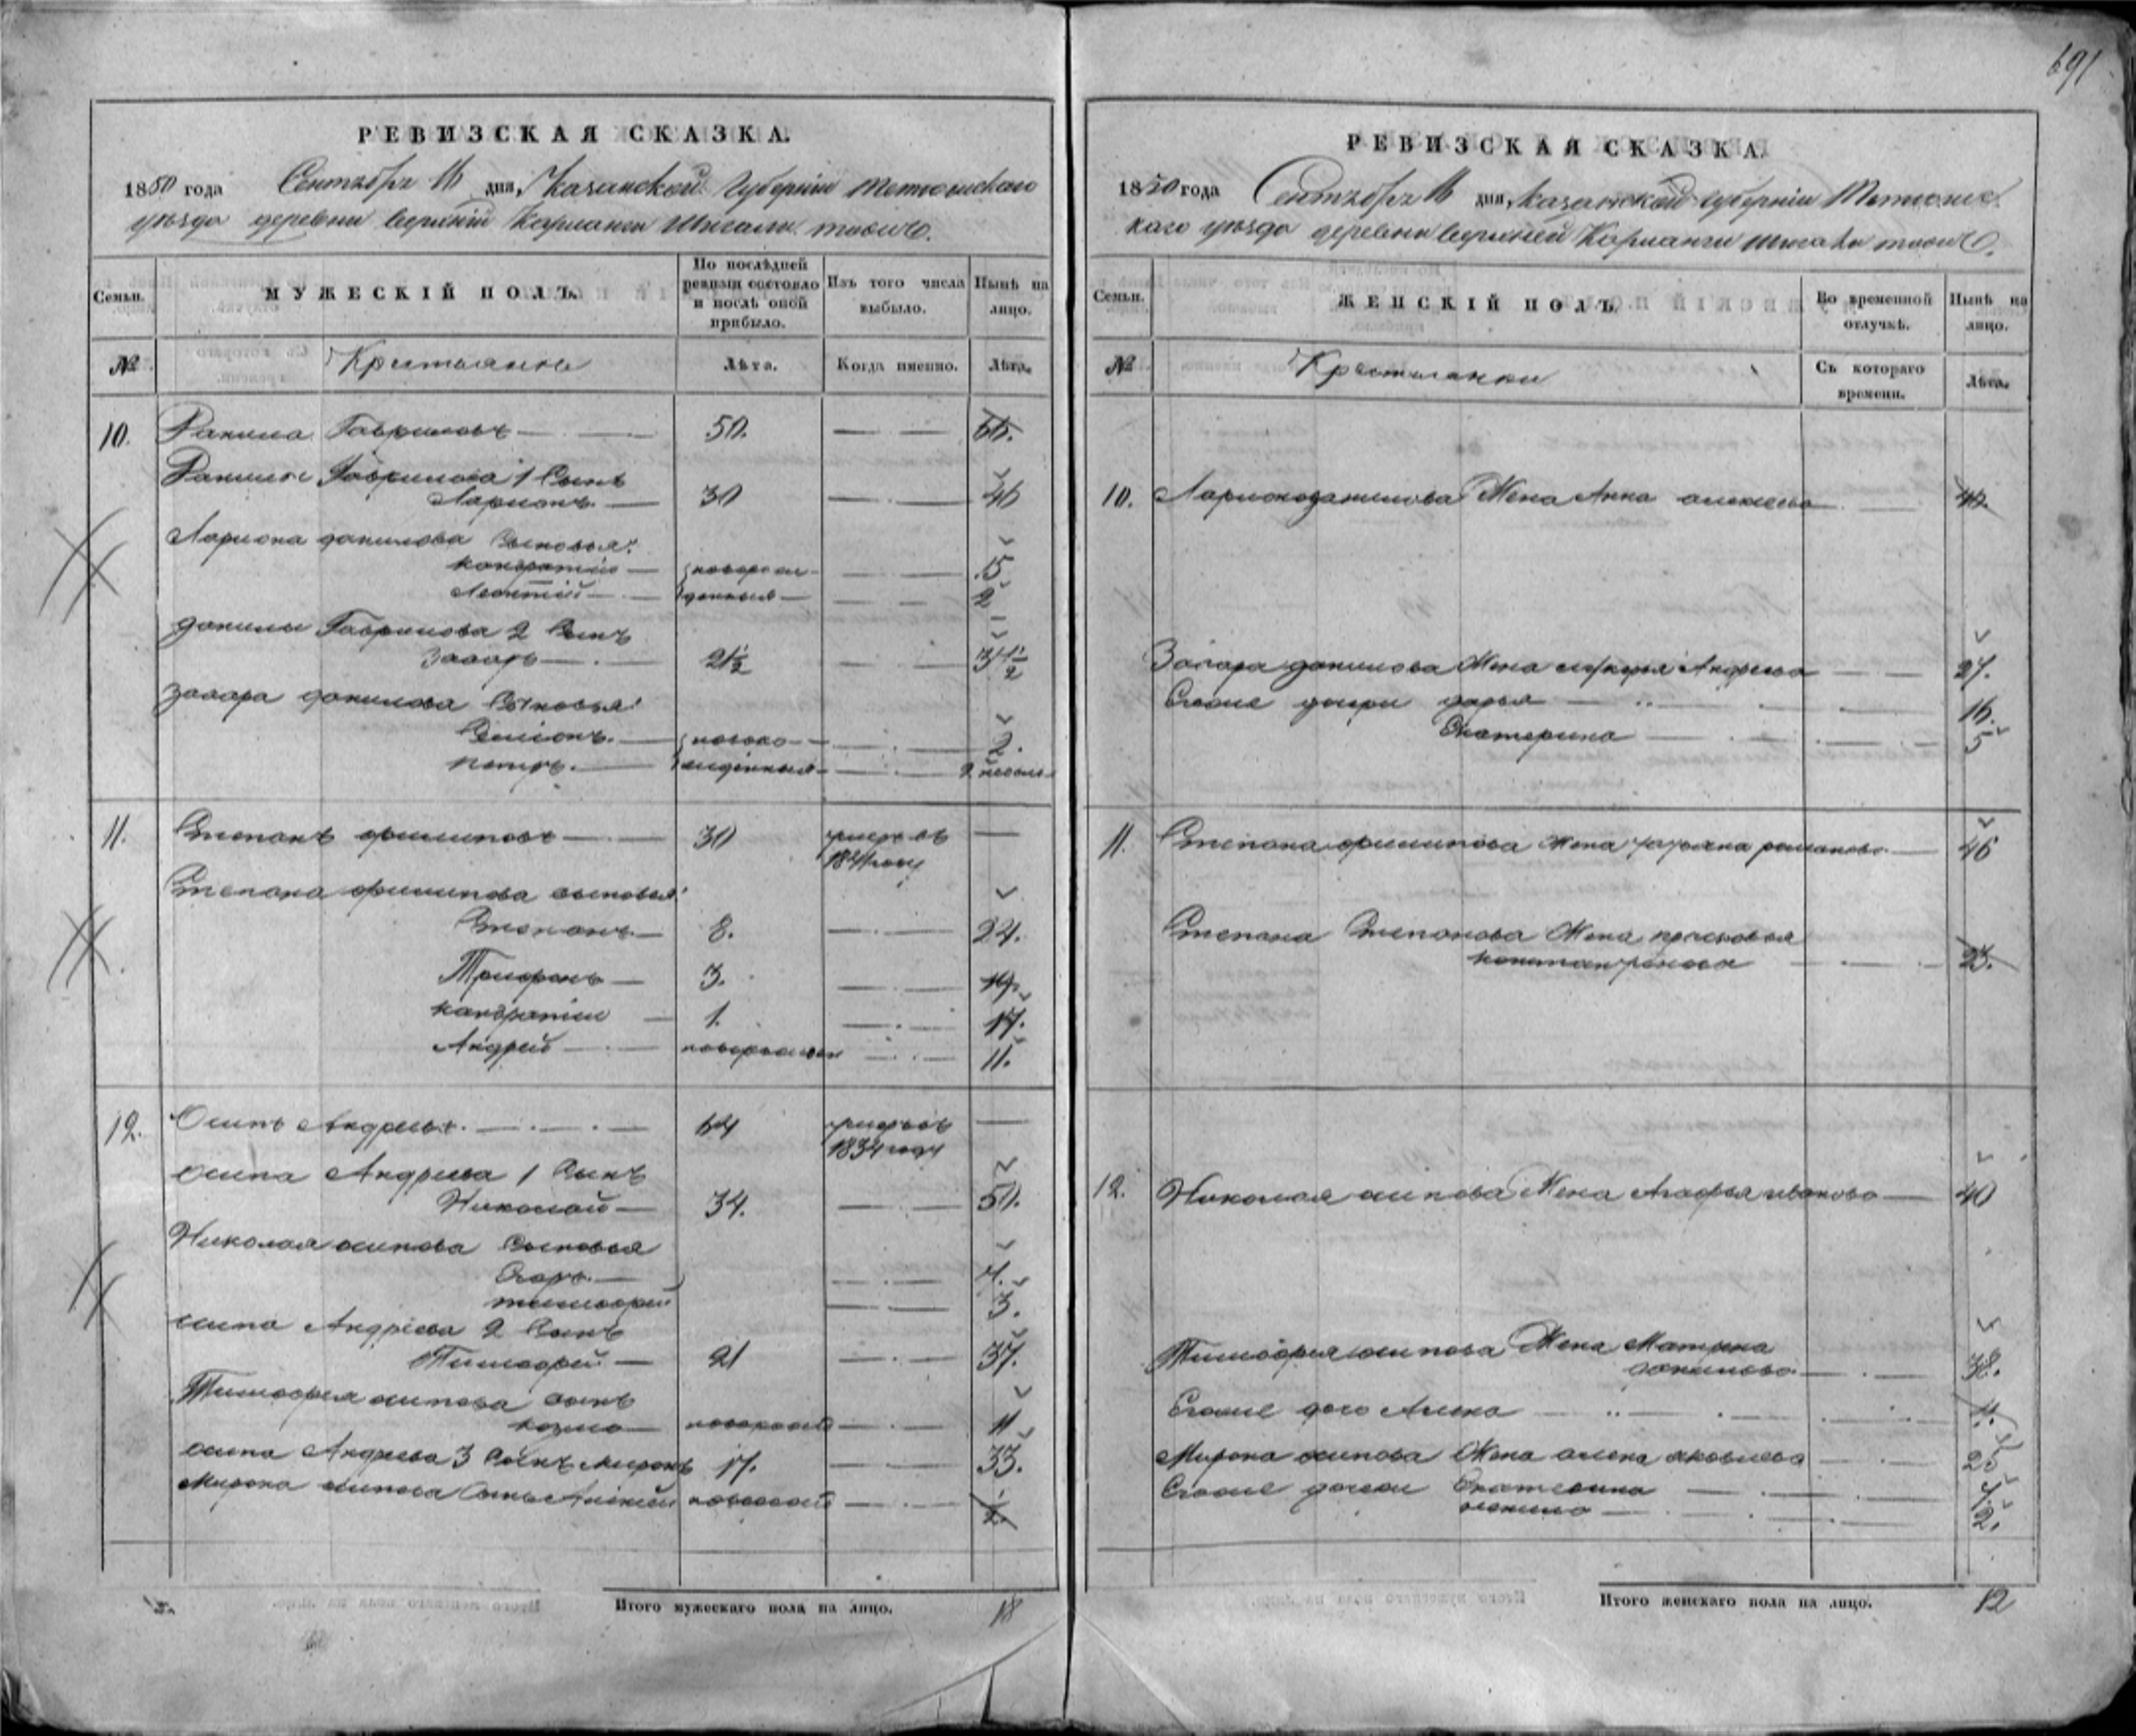 691
РЕВИЗСКАЯ СКАЗКА.
1850 года Сентября 16 дня, Казанской Губерніи Тетюшскаго
уѣзда деревни верхній Карманги Шигали тоожъ.
Семьи.
МУЖЕСКІЙ ПОЛЪ.
По послѣдней ревизіи состояло и послѣ оной прибыло.
Изъ того числа выбыло.
Нынѣ на лицо.
№
Крестьяне
Лѣта.
Когда именно.
Лѣта.
10. Данила Гавриловъ 50. 66.
Данилы Гаврилова 1 Сынъ
Ларионъ 30 46
Лариона данилова Сыновья:
кондратій новорож- 5
Леонтій денныя 2
данилы Гаврилова 2 Сынъ
Захаръ
захара данилова Сыновья:
Симіонъ новоро- 2.
петръ. жденныя 2 недели
11. Степанъ филиповъ 30
Степана филипова сыновья:
Степанъ 8. 24.
Трифонъ 3. 19.
кандратій 1. 17.
Андрей новорожден 11.
12. Осипъ Андреевъ. 64 умеръ въ
1834 году
осипа Андреева 1 Сынъ
Николай 34. 50.
Николая осипова Сыновья
Егоръ
тимофей 3.
осипа Андреева 2 Сынъ
Тимофей 21 37.
Тимофея осипова сынъ
козма 11
осипа Андреева 3 Сынъ миронъ 17. 33.
Мирона осипова Сынъ Алексей
Итого мужескаго пола на лицо. 18
РЕВИЗСКАЯ СКАЗКА.
1850 года Сентября 16 дня, казанской губерніи Тетюшс
каго уѣзда деревни верхней Карманги шигали тоожъ.
Семьи.
ЖЕНСКІЙ ПОЛЪ.
Во временной отлучкѣ.
Нынѣ на лицо.
№
Крестьянки
Съ котораго времени.
Лѣта.
10. Лариона данилова Жена Анна алексеева
Захара данилова Жена лукерья Андреева 27.
Егоже дочери дарья 16.
Екатерина 5
11. Степана филипова Жена татьяна романова 46
Степана Степанова Жена прасковья
константинова 23.
12. Николая осипова Жена Агафья иванова 40
Тимофея осипова Жена Матрена
данилова 38.
Егоже дочь Алена
Мирона осипова Жена алена яковлева
Егоже дочери Екатерина
2.
Итого женскаго пола на лицо. 12